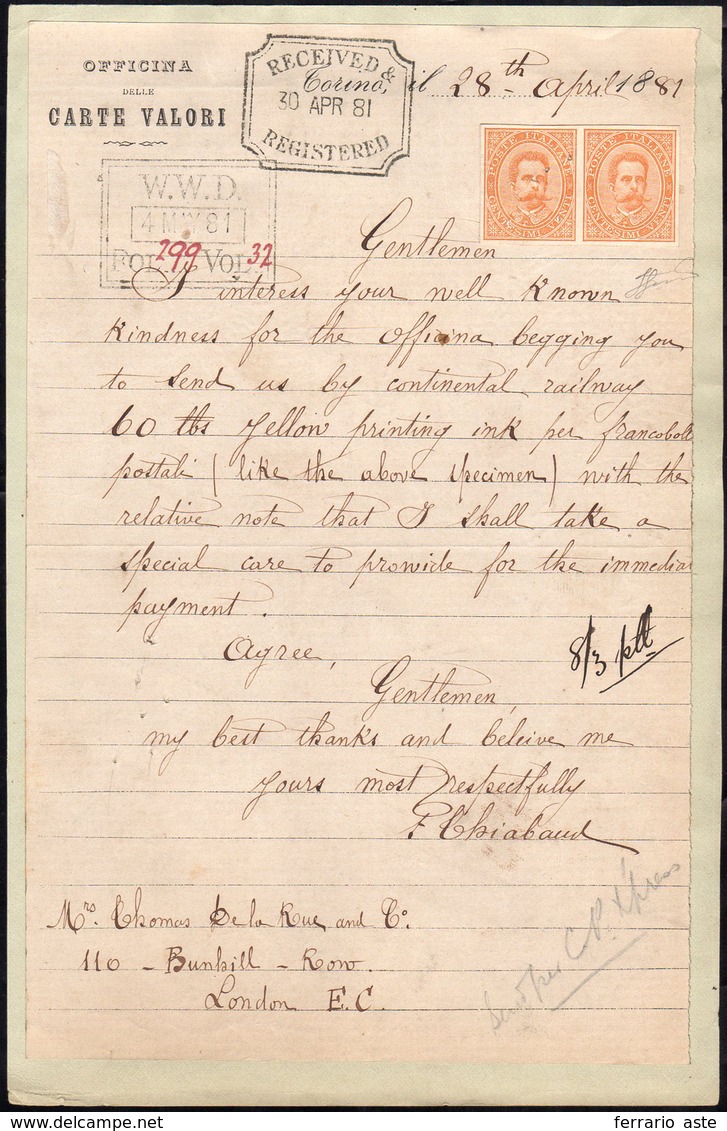 OFFICINA
DELLE
CARTE VALORI
RECEIVED &
30 APR 81
REGISTERED
Torino, il 28-th April 1881
POSTE ITALIANE
CENTESIMI VENTI
POSTE ITALIANE
CENTESIMI VENTI
W.W.D.
4 MAY 81
FOL. 299 VOL 32
Gentlemen
I interess your well known
kindness for the Officina begging you
to send us by continental railway
60 lbs yellow printing ink per francoboll
postali (like the above specimen) with the
relative note that I shall take a
special care to prowide for the immedia
payment.
8/3 ptt
Agree,
Gentlemen,
my best thanks and beleive me
yours most respectfully
F. Chiabaud
Mrs. Thomas De la Rue and Co.
110 - Bunhill - Row.
London E.C.
Send per C.P. Xpress
ferrario aste